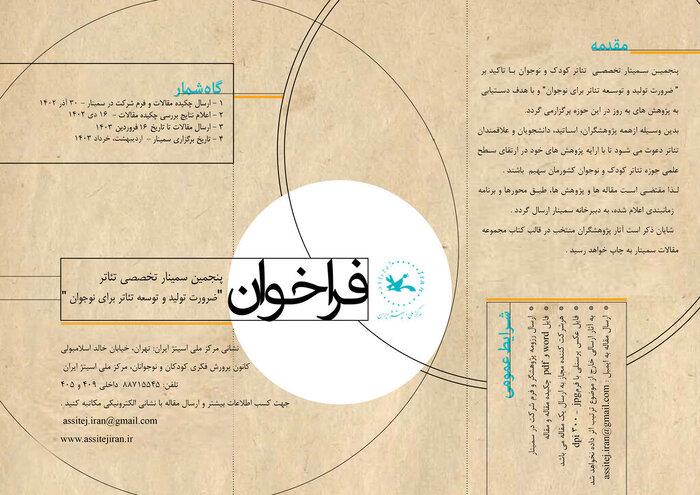 مقدمه
پنجمین سمینار تخصصی تئاتر کودک و نوجوان با تاکید بر
" ضرورت تولید و توسعه تئاتر برای نوجوان" و با هدف دستیابی
به پژوهش های به روز در این حوزه برگزارمی گردد.
بدین وسیله ازهمه پژوهشگران، اساتید، دانشجویان و علاقمندان
تئاتر دعوت می شود تا با ارایه پژوهش های خود در ارتقای سطح
علمی حوزه تئاتر کودک و نوجوان کشورمان سهیم باشند .
لذا مقتضی است مقاله ها و پژوهش ها، طبق محورها و برنامه
زمانبندی اعلام شده، به دبیرخانه سمینار ارسال گردد .
شایان ذکر است آثار پژوهشگران منتخب در قالب کتاب مجموعه
مقالات سمینار به چاپ خواهد رسید .
گاه‌شمار
۱ - ارسال چکیده مقالات و فرم شرکت در سمینار - ۳۰ آذر ۱۴۰۲
۲ - اعلام نتایج بررسی چکیده مقالات - ۱۶ دی ۱۴۰۲
۳ - ارسال مقالات تا تاریخ ۱۶ فروردین ۱۴۰۳
۴ - تاریخ برگزاری سمینار - اردیبهشت، خرداد ۱۴۰۳
فراخوان
مرکز ملی اسیتژ ایران
پنجمین سمینار تخصصی تئاتر
"ضرورت تولید و توسعه تئاتر برای نوجوان "
نشانی مرکز ملی اسیتژ ایران: تهران، خیابان خالد اسلامبولی
کانون پرورش فکری کودکان و نوجوانان، مرکز ملی اسیتژ ایران
تلفن: ۸۸۷۱۵۵۴۵ داخلی ۴۰۹ و ۴۰۵
جهت کسب اطلاعات بیشتر و ارسال مقاله با نشانی الکترونیکی مکاتبه کنید .
assitej.iran@gmail.com
www.assitejiran.ir
شرایط عمومی
ارسال رزومه پژوهشگر و فرم شرکت در سمینار
فایل word و pdf چکیده مقاله و مقاله
هرشرکت کننده مجاز به ارسال یک مقاله می باشد
فایل عکس پرسنلی با فرمت jpg - ۳۰۰ dpi
به آثار ارسالی خارج از موضوع ترتیب اثر داده نخواهد شد
ارسال مقاله به ایمیل : assitej.iran@gmail.com